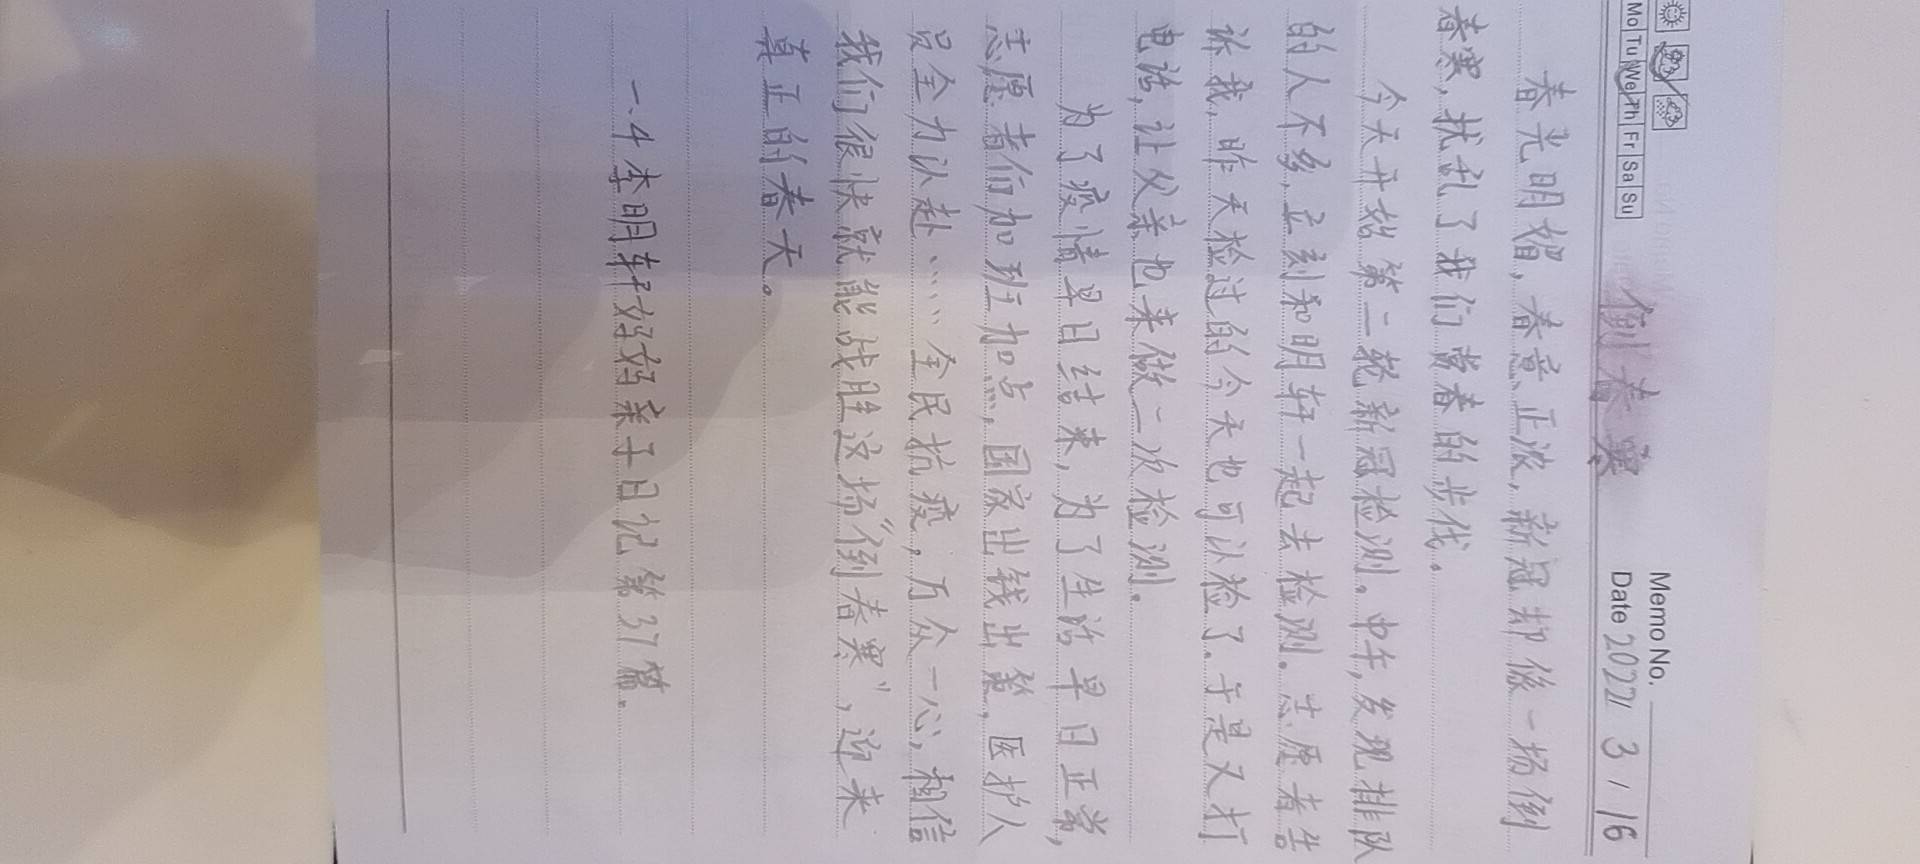 Memo No.
Mo Tu We Th Fr Sa Su
Date 2022 / 3 / 16
倒春寒
春光明媚，春意正浓，新冠却像一场倒
春寒，扰乱了我们赏春的步伐。
今天开始第二轮新冠检测。中午，发现排队
的人不多，立刻和明轩一起去检测。志愿者告
诉我，昨天检过的今天也可以检了。于是又打
电话，让父亲也来做二次检测。
为了疫情早日结束，为了生活早日正常，
志愿者们加班加点，国家出钱出策，医护人
员全力以赴……全民抗疫，万众一心，相信
我们很快就能战胜这场“倒春寒”，迎来
真正的春天。
一.4李明轩妈妈亲子日记第37篇.